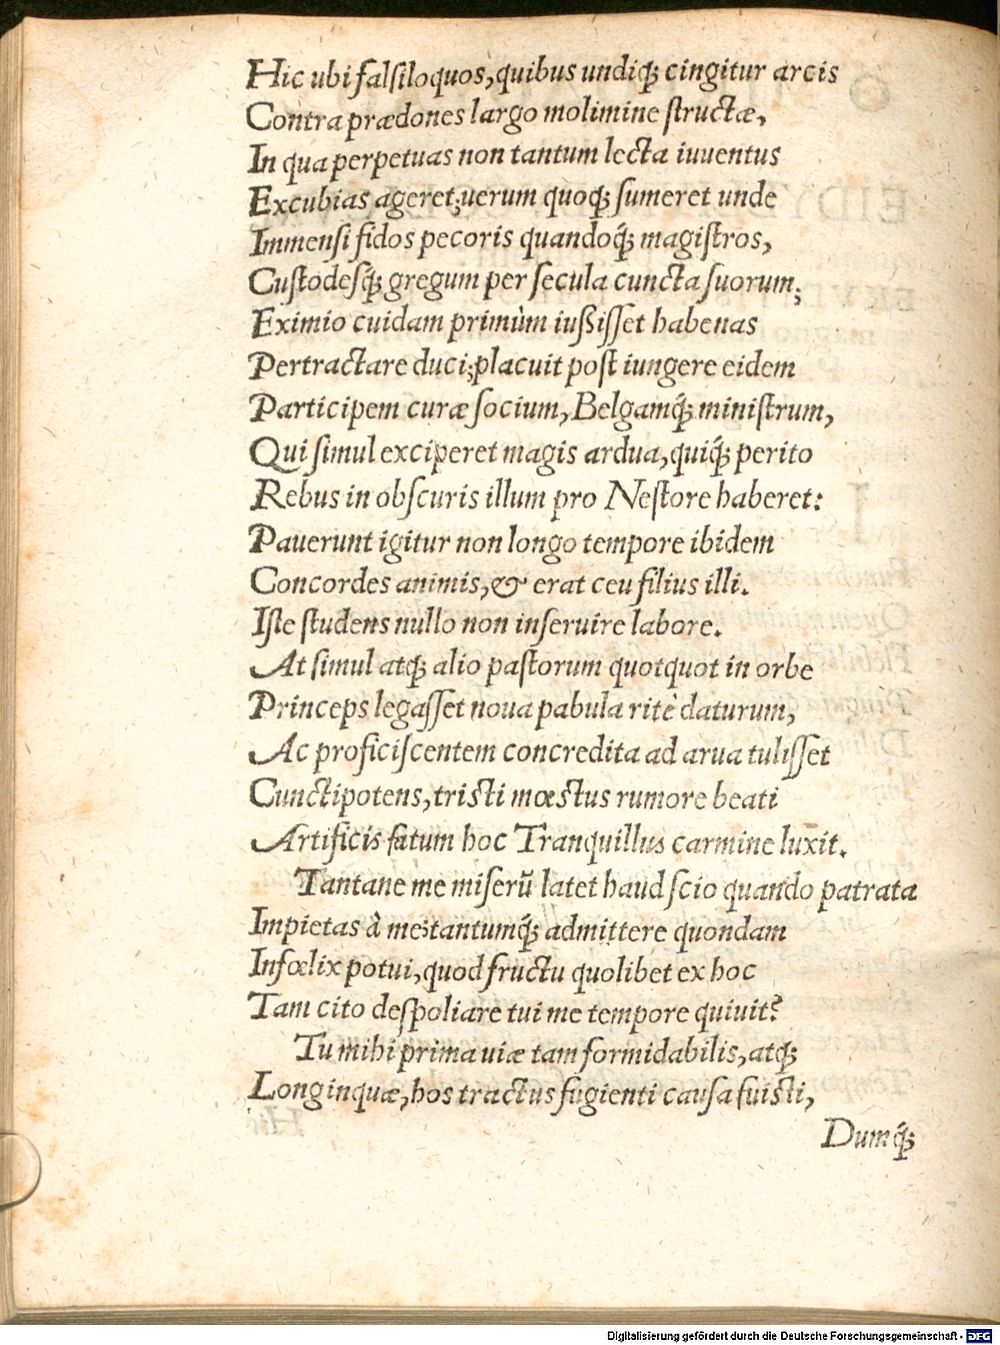 Hic ubi falsiloquos, quibus undiq; cingitur arcis
Contra prædones largo molimine structæ,
In qua perpetuas non tantum lecta iuuentus
Excubias ageret; uerum quoq; sumeret unde
Immensi fidos pecoris quandoq́; magistros,
Custodesq́; gregum per secula cuncta suorum;
Eximio cuidam primùm iußisset habenas
Pertractare duci; placuit post iungere eidem
Participem curæ socium, Belgamq́; ministrum,
Qui simul exciperet magis ardua, quiq́; perito
Rebus in obscuris illum pro Nestore haberet:
Pauerunt igitur non longo tempore ibidem
Concordes animis, & erat ceu filius illi.
Iste studens nullo non inseruire labore.
At simul atq; alio pastorum quotquot in orbe
Princeps legasset noua pabula ritè daturum,
Ac proficiscentem concredita ad arua tulisset
Cunctipotens, tristi mœstus rumore beati
Artificis fatum hoc Tranquillus carmine luxit.
Tantane me miserũ latet haud scio quando patrata
Impietas à me: tantumq́; admittere quondam
Infœlix potui, quod fructu quolibet ex hoc
Tam cito despoliare tui me tempore quiuit?
Tu mihi prima uiæ tam formidabilis, atq́;
Longinquæ, hos tractus fugienti causa fuisti,
Dumq́;
Digitalisierung gefördert durch die Deutsche Forschungsgemeinschaft - DFG